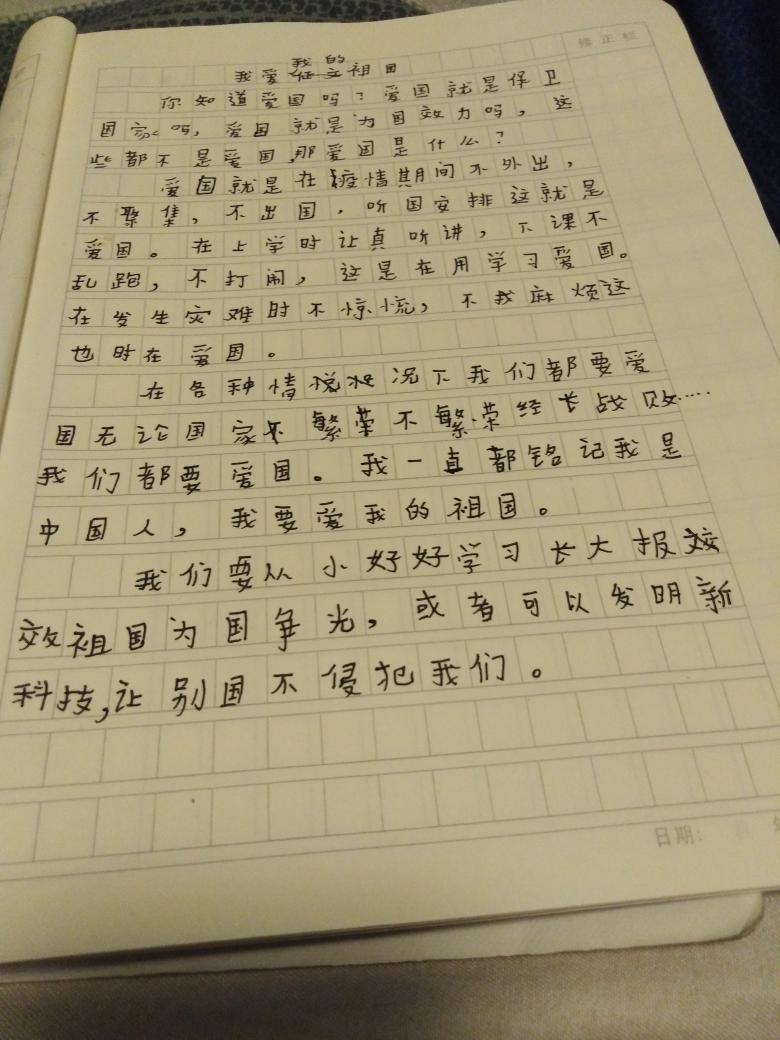 修正栏
我的
我爱祖国
你知道爱国吗？爱国就是保卫
国家吗，爱国就是为国效力吗，这
些都不是爱国，那爱国是什么？
爱国就是在疫情期间不外出，
不聚集，不出国，听国安排这就是
爱国。在上学时让真听讲，下课不
乱跑，不打闹，这是在用学习爱国。
在发生灾难时不惊慌，不找麻烦这
也时在爱国。
在各种情悦状况下我们都要爱
国无论国家不繁荣不繁荣经长战败……
我们都要爱国。我一直都铭记我是
中国人，我要爱我的祖国。
我们要从小好好学习长大报效
效祖国为国争光，或者可以发明新
科技，让别国不侵犯我们。
日期：